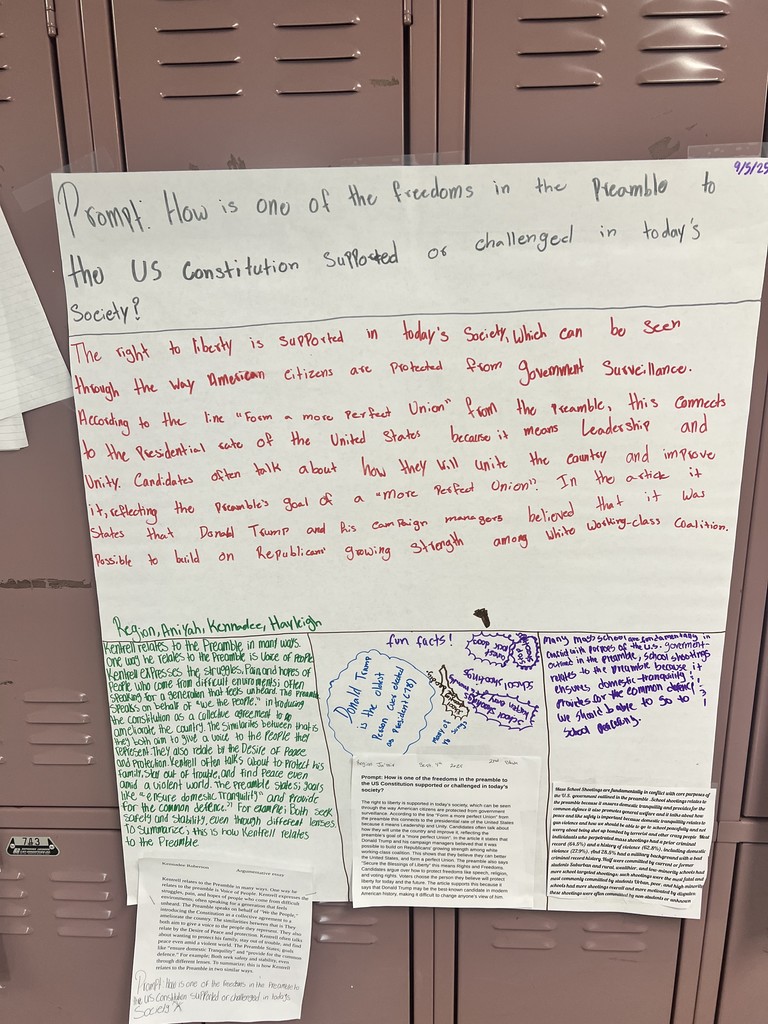 9/5/25
Prompt: How is one of the freedoms in the Preamble to
the US Constitution supported or challenged in today's
Society?
The right to liberty is supported in today's society, which can be seen
through the way American citizens are protected from government surveillance.
According to the line "Form a more Perfect Union" from the preamble, this connects
to the Presidential rate of the United States because it means Leadership and
Unity. Candidates often talk about how they will unite the country and improve
it, reflecting the Preamble's goal of a "more Perfect Union". In the article it
states that Donald Trump and his campaign managers believed that it was
Possible to build on Republicans' growing strength among white working-class coalition.
Region, Aniyah, Kennadee, Hayleigh
Kentrell relates to the Preamble in many ways.
One way he relates to the Preamble is Voice of People
Kentrell expresses the struggles, Pain and hopes of
People who come from difficult enviroments; often
speaking for a generation that feels unheard. The Preamble
speaks on behalf of "we the People," in introducing
the constitution as a collective agreement to
ameliorate the country. The similarities between that is
they both aim to give a voice to the people they
represent. They also relate by the Desire of Peace
and Protection. Kentrell often talks about to protect his
family, stay out of trouble, and find Peace even
amid a violent world. The Preamble states; goals
like "ensure domestic Tranquility" and "Provide
for the common defence." For example; Both seek
safety and stability, even though different lenses.
To summarize; this is how Kentrell relates
to the Preamble
fun facts!
Donald Trump
is the oldest
Person ever elected
as President (78)
school shootings
many mass school are fundamentally in
conflict with core purposes of the U.S. government
outlined in the preamble, school shootings
relates to the preamble because it
ensures domestic tranquility
provides for the common defense
we should be able to go to
school
Sept. 4th 2025
Prompt: How is one of the freedoms in the preamble to
the US Constitution supported or challenged in today's
society?
The right to liberty is supported in today's society, which can be seen
through the way American citizens are protected from government
surveillance. According to the line "Form a more perfect Union" from
the preamble this connects to the presidential rate of the United States
because it means Leadership and Unity. Candidates often talk about
how they will unite the country and improve it, reflecting the
preamble's goal of a "more perfect Union". In the article it states that
Donald Trump and his campaign managers believed that it was
possible to build on Republicans' growing strength among white
working-class coalition. This shows that they believe they can better
the United States, and form a perfect Union. The preamble also says
"Secure the Blessings of Liberty" this means Rights and Freedoms.
Candidates argue over how to protect freedoms like speech, religion,
and voting rights. Voters choose the person they believe will protect
liberty for today and the future. The article supports this because it
says that Donald Trump may be the best-known candidate in modern
American history, making it difficult to change anyone's view of him.
Mass School Shootings are fundamentally in conflict with core purposes of
the U.S. government outlined in the preamble. School shootings relates to the
preamble because it ensures domestic tranquility and provides for the
common defense it also promotes general welfare and it talks about how
gun violence and how we should be able to go to school peacefully and not
worry about being shot up
record (64.5%) and a history of violence (62.8%), including domestic
violence (27.9%). And 28.5% had a military background
criminal record history.
Kennadee Roberson
Argumentative essay
Kentrell relates to the Preamble in many ways. One way he
relates to the preamble is Voice of People. Kentrell expresses the
struggles, pain, and hopes of people who come from difficult
environments; often speaking for a generation that feels
unheard. The Preamble speaks on behalf of "We the People,"
introducing the Constitution as a collective agreement to
ameliorate the country. The similarities between that is They
both aim to give a voice to the people they represent. They also
relate by the Desire of Peace and Protection. Kentrell often talks
about wanting to protect his family, stay out of trouble, and find
peace even amid a violent world. The Preamble States; goals
like "ensure domestic Tranquility" and "provide for the common
defence." For example; Both seek safety and stability, even
through different lenses. To summarize; this is how Kentrell
relates to the Preamble in two similar ways
Prompt: How is one of the freedoms in the Preamble to
the US constitution supported or challenged in today's
Society
743